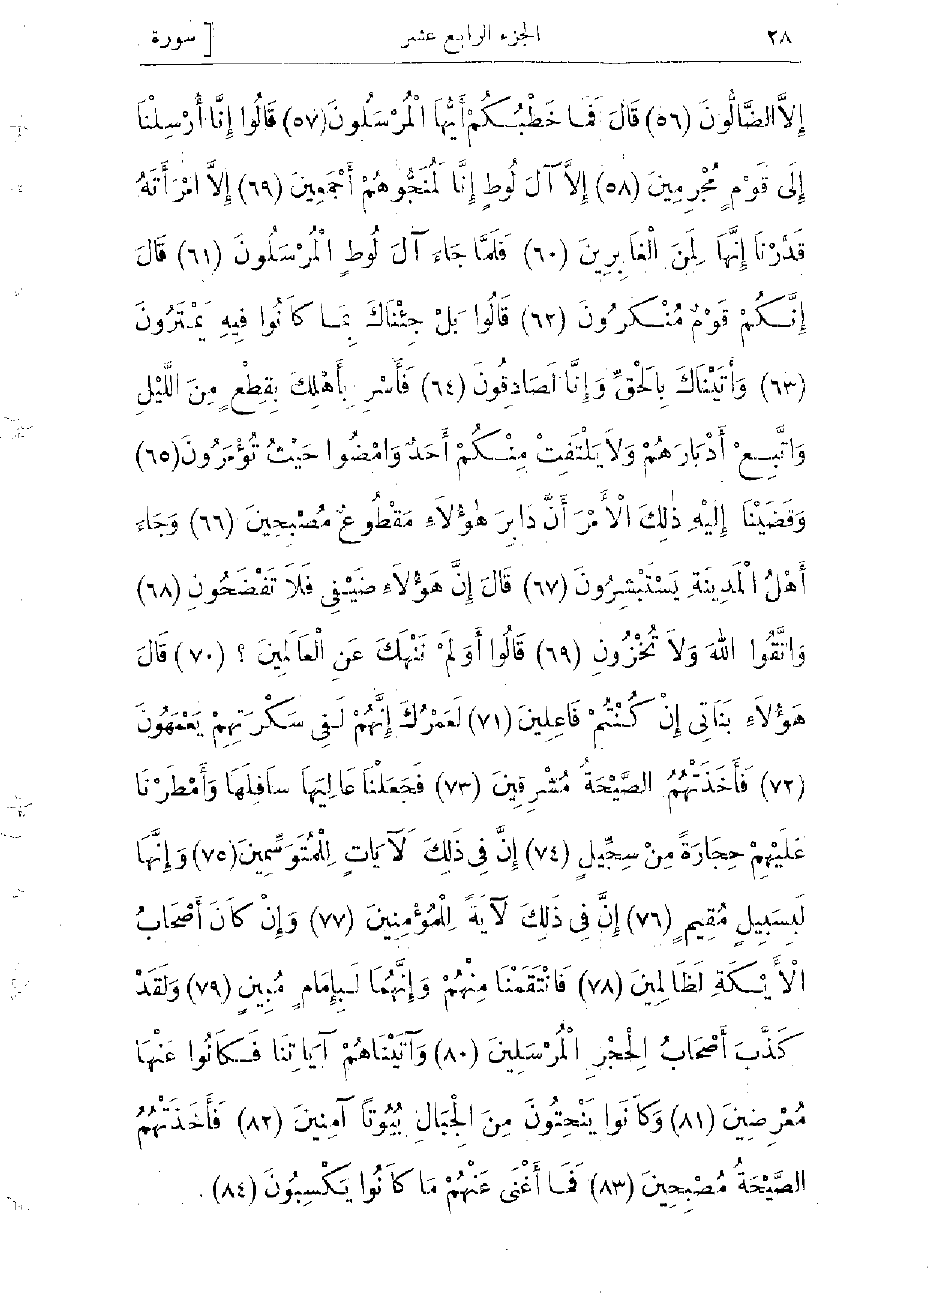 ٢٨ الجزء الرابع عشر [ سورة
إِلاَّ الضَّالُّونَ (٥٦) قَالَ فَمَا خَطْبُكُمْ أَيُّهَا الْمُرْسَلُونَ (٥٧) قَالُوا إِنَّا أُرْسِلْنَا
إِلَى قَوْمٍ مُجْرِمِينَ (٥٨) إِلاَّ آلَ لُوطٍ إِنَّا لَمُنَجُّوهُمْ أَجْمَعِينَ (٦٩) إِلاَّ امْرَأَتَهُ
قَدَّرْنَا إِنَّهَا لَمِنَ الْغَابِرِينَ (٦٠) فَلَمَّا جَاءَ آلَ لُوطٍ الْمُرْسَلُونَ (٦١) قَالَ
إِنَّكُمْ قَوْمٌ مُنْكَرُونَ (٦٢) قَالُوا بَلْ جِئْنَاكَ بِمَا كَانُوا فِيهِ يَمْتَرُونَ
(٦٣) وَأَتَيْنَاكَ بِالْحَقِّ وَإِنَّا لَصَادِقُونَ (٦٤) فَأَسْرِ بِأَهْلِكَ بِقِطْعٍ مِنَ اللَّيْلِ
وَاتَّبِعْ أَدْبَارَهُمْ وَلاَ يَلْتَفِتْ مِنْكُمْ أَحَدٌ وَامْضُوا حَيْثُ تُؤْمَرُونَ (٦٥)
وَقَضَيْنَا إِلَيْهِ ذٰلِكَ الْأَمْرَ أَنَّ دَابِرَ هٰؤُلاَءِ مَقْطُوعٌ مُصْبِحِينَ (٦٦) وَجَاءَ
أَهْلُ الْمَدِينَةِ يَسْتَبْشِرُونَ (٦٧) قَالَ إِنَّ هَؤُلاَءِ ضَيْفِي فَلاَ تَفْضَحُونِ (٦٨)
وَاتَّقُوا اللهَ وَلاَ تُخْزُونِ (٦٩) قَالُوا أَوَلَمْ نَنْهَكَ عَنِ الْعَالَمِينَ ؟ (٧٠) قَالَ
هَؤُلاَءِ بَنَاتِي إِنْ كُنْتُمْ فَاعِلِينَ (٧١) لَعَمْرُكَ إِنَّهُمْ لَفِي سَكْرَتِهِمْ يَعْمَهُونَ
(٧٢) فَأَخَذَتْهُمُ الصَّيْحَةُ مُشْرِقِينَ (٧٣) فَجَعَلْنَا عَالِيَهَا سَافِلَهَا وَأَمْطَرْنَا
عَلَيْهِمْ حِجَارَةً مِنْ سِجِّيلٍ (٧٤) إِنَّ فِي ذَلِكَ لَآيَاتٍ لِلْمُتَوَسِّمِينَ (٧٥) وَإِنَّهَا
لَبِسَبِيلٍ مُقِيمٍ (٧٦) إِنَّ فِي ذَلِكَ لَآيَةً لِلْمُؤْمِنِينَ (٧٧) وَإِنْ كَانَ أَصْحَابُ
الْأَيْكَةِ لَظَالِمِينَ (٧٨) فَانْتَقَمْنَا مِنْهُمْ وَإِنَّهُمَا لَبِإِمَامٍ مُبِينٍ (٧٩) وَلَقَدْ
كَذَّبَ أَصْحَابُ الْحِجْرِ الْمُرْسَلِينَ (٨٠) وَآتَيْنَاهُمْ آيَاتِنَا فَكَانُوا عَنْهَا
مُعْرِضِينَ (٨١) وَكَانُوا يَنْحِتُونَ مِنَ الْجِبَالِ بُيُوتًا آمِنِينَ (٨٢) فَأَخَذَتْهُمُ
الصَّيْحَةُ مُصْبِحِينَ (٨٣) فَمَا أَغْنَى عَنْهُمْ مَا كَانُوا يَكْسِبُونَ (٨٤) .